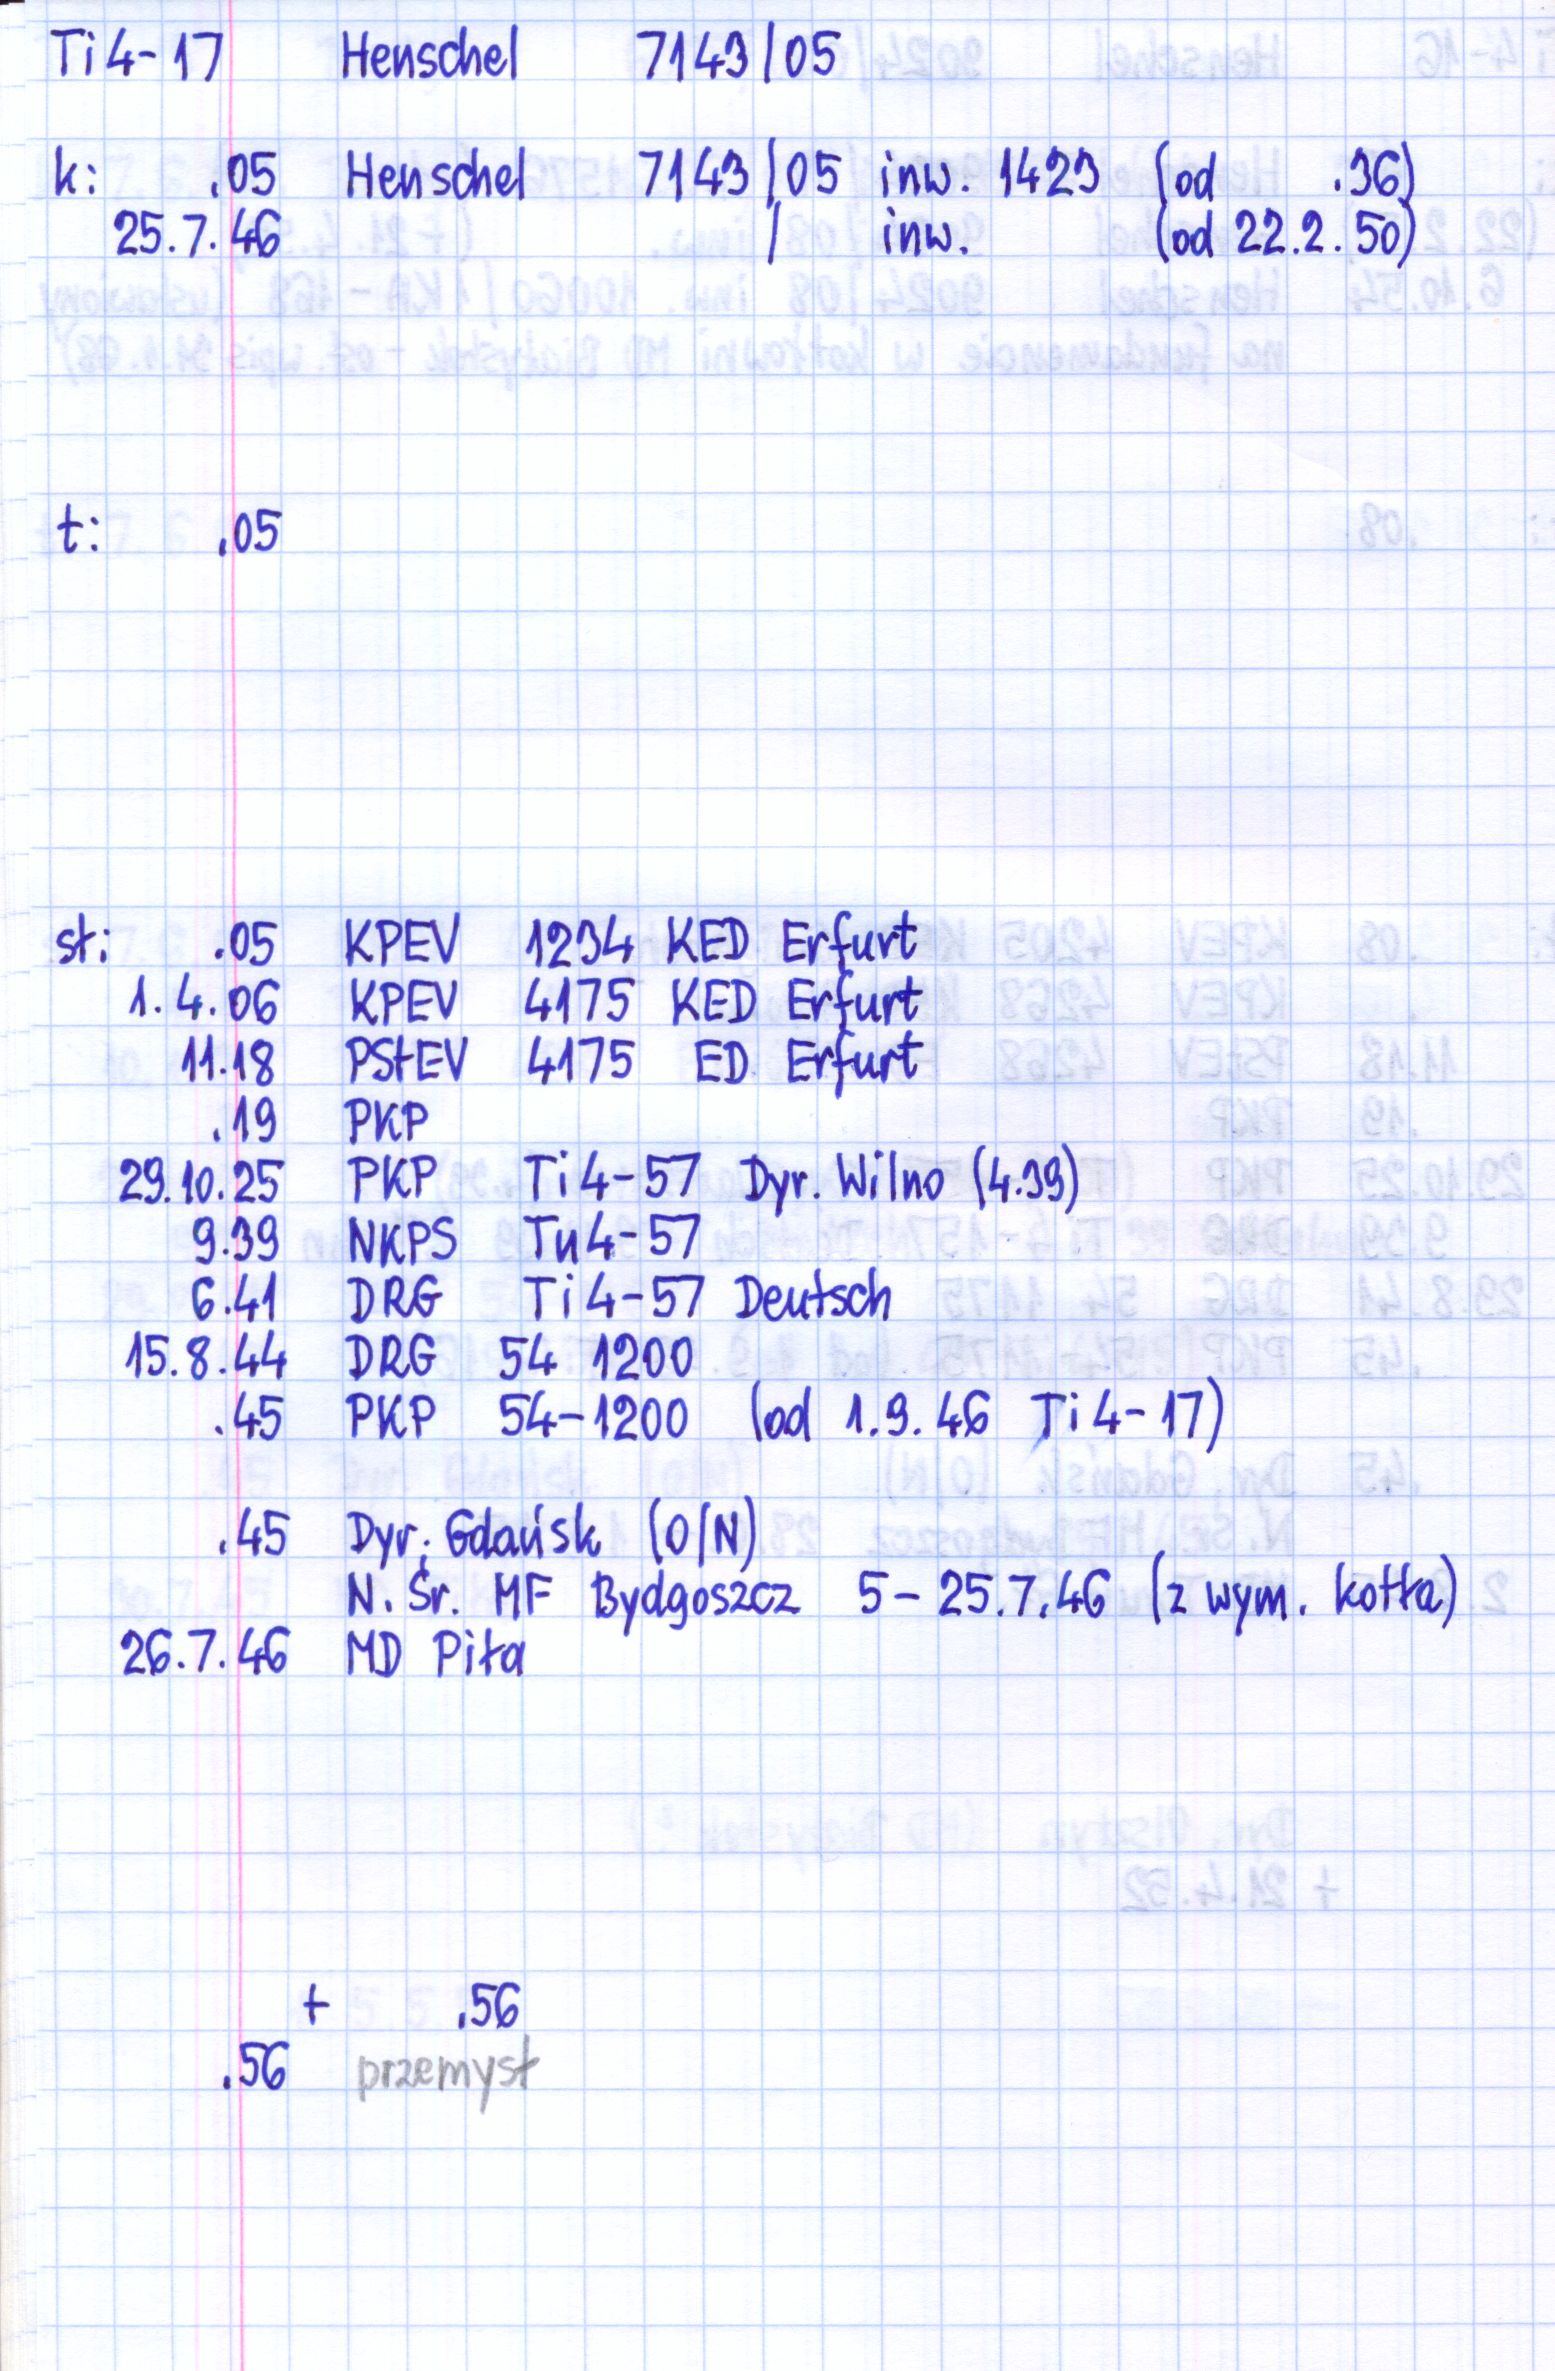 Ti4-17 Henschel 7143/05
k: .05 Henschel 7143/05 inw. 1423 (od .36)
25.7.46 / inw. (od 22.2.50)
t: .05
st: .05 KPEV 1234 KED Erfurt
1.4.06 KPEV 4175 KED Erfurt
11.18 PStEV 4175 ED Erfurt
.19 PKP
29.10.25 PKP Ti4-57 Dyr. Wilno (4.39)
9.39 NKPS Tu4-57
6.41 DRG Ti4-57 Deutsch
15.8.44 DRG 54 1200
.45 PKP 54-1200 (od 1.9.46 Ti4-17)
.45 Dyr. Gdańsk (O/N)
N. Śr. MF Bydgoszcz 5-25.7.46 (z wym. kotła)
26.7.46 MD Piła
+ .56
.56 przemysł